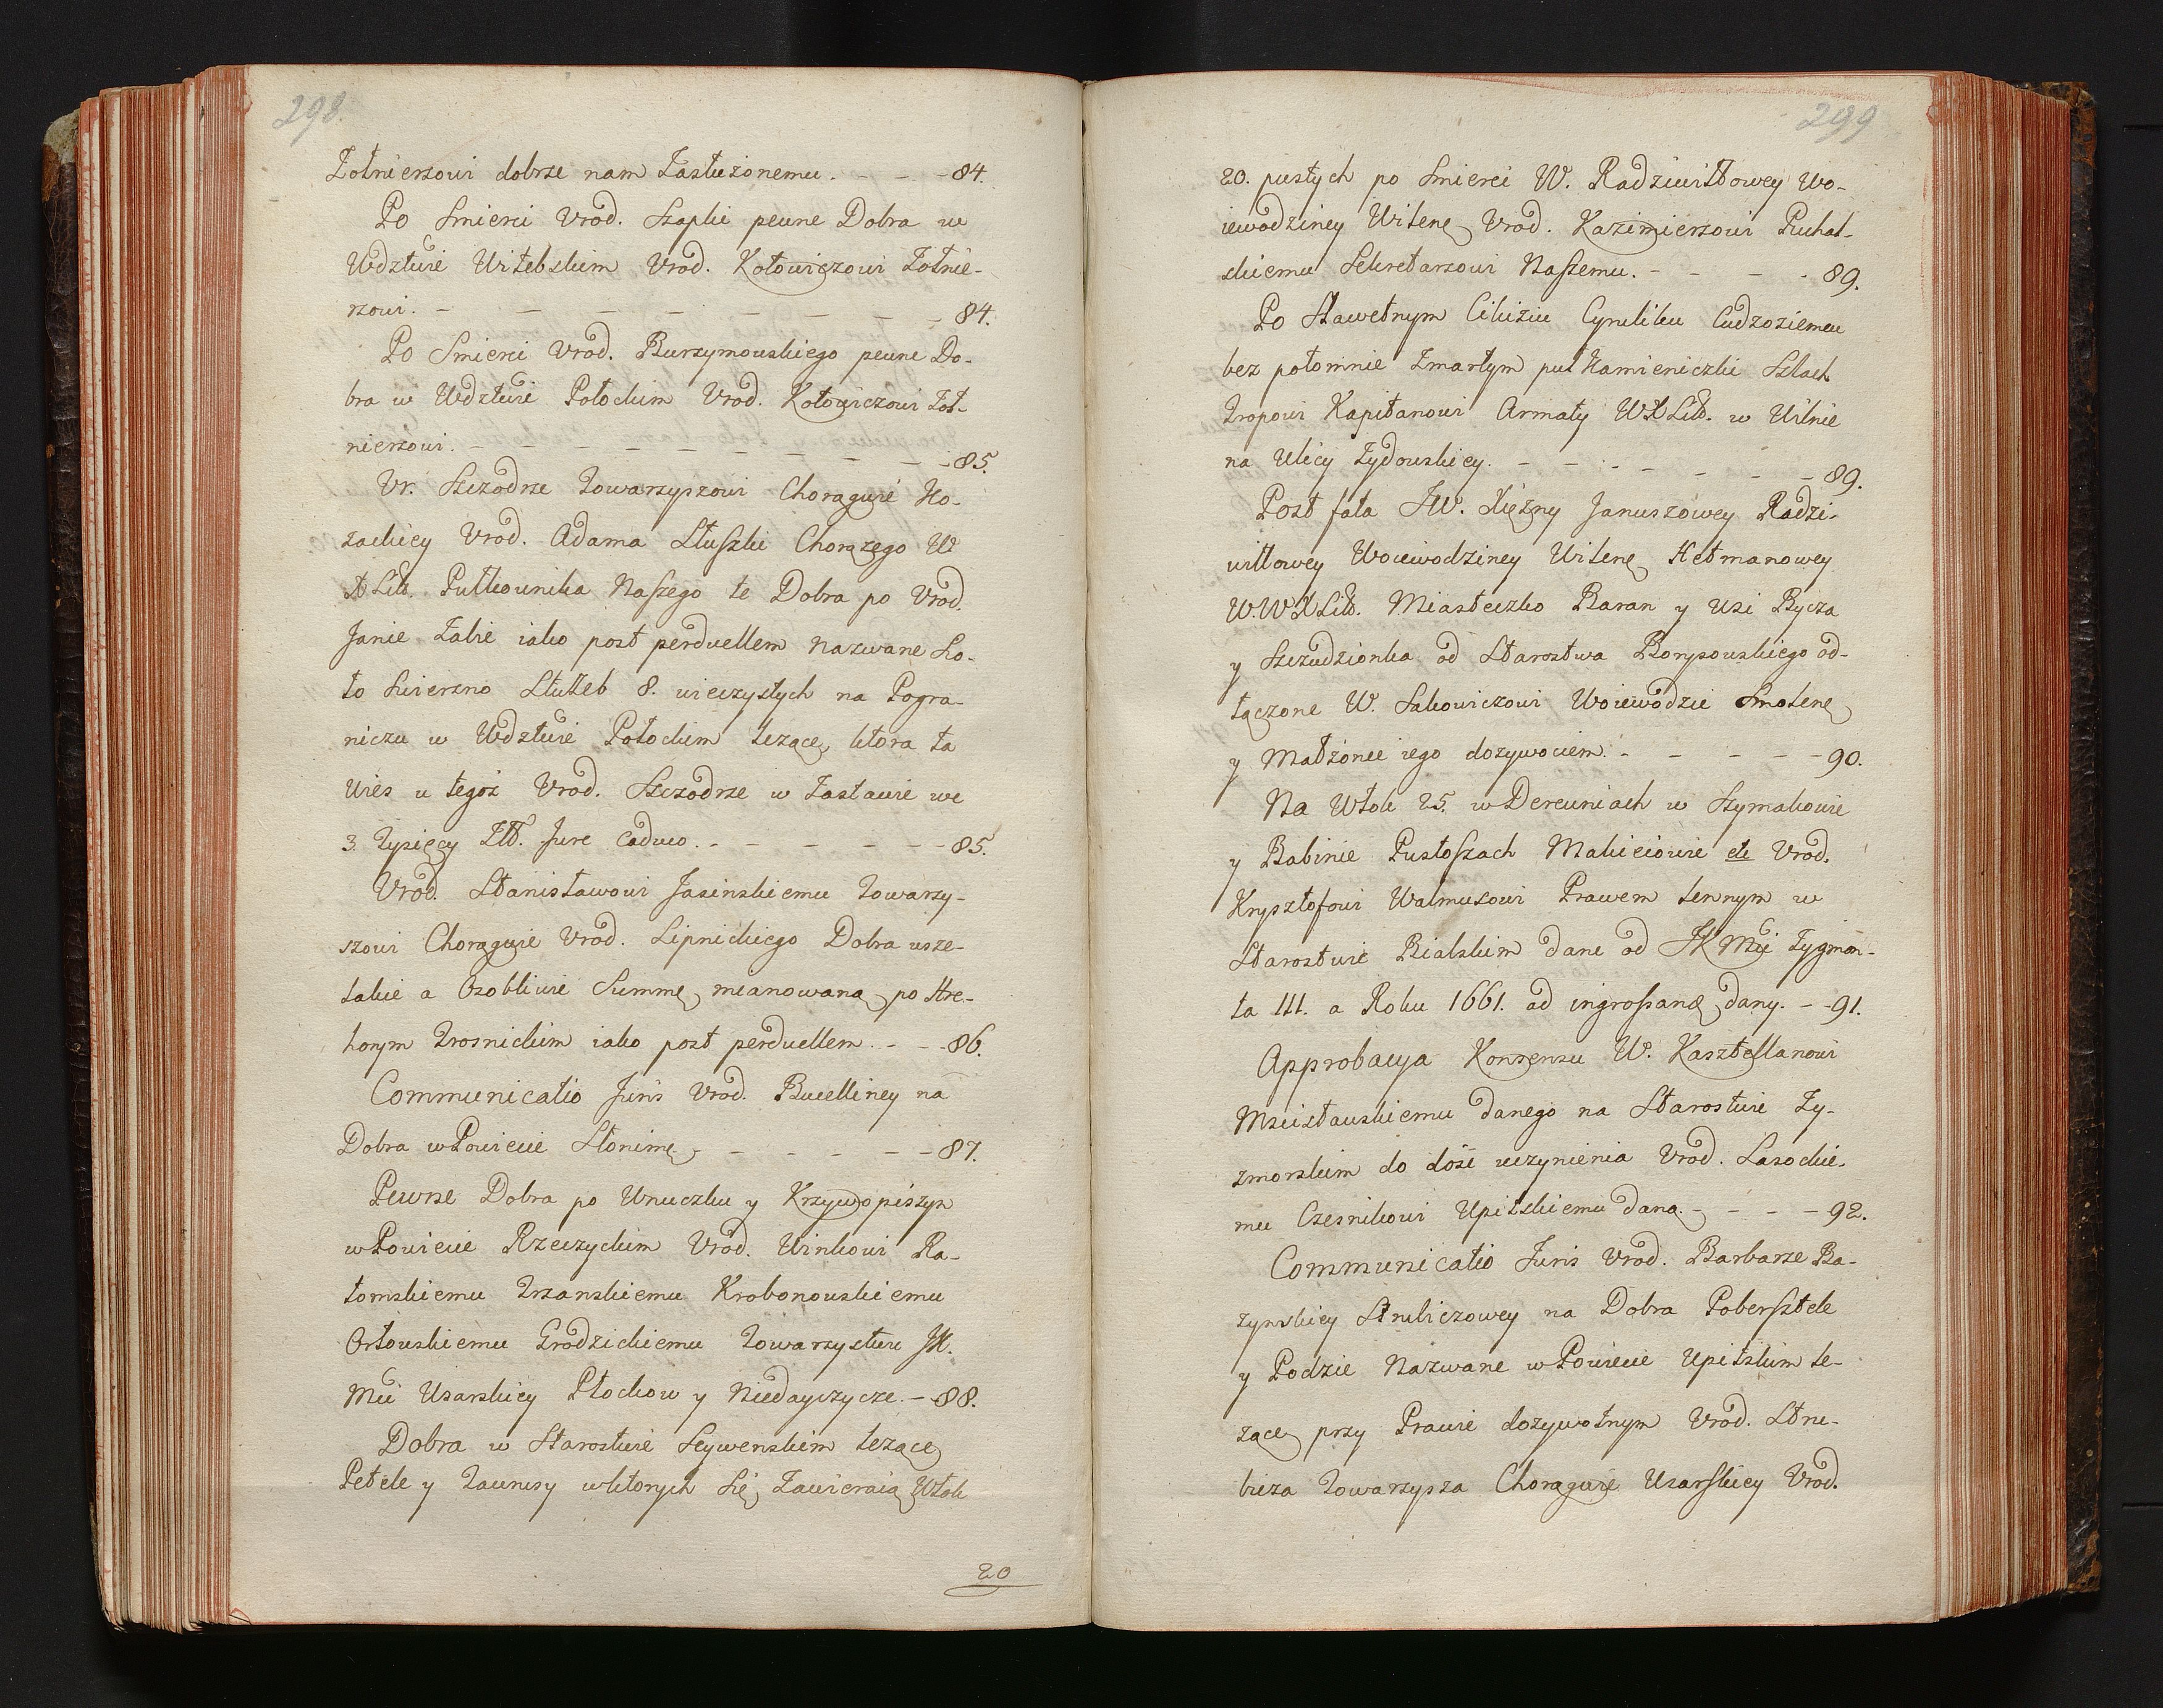 298.
Zołnierzowi dobrze nam Zasłużonemu. - - - 84.
Po Smierci Urod. Szaplii pewne Dobra w
Wdztwie Witebskim Urod. Kotowiczowi Zołnie-
rzowi. - - - - - - - - 84.
Po Smierci Urod. Burzymowskiego pewne Do-
bra w Wdztwie Połockim Urod. Kotowiczowi Zoł-
nierzowi. - - - - - - - - 85.
Ur. Szczodrze Towarzyszowi Chorągwie Ko-
zackiey Urod. Adama Słuszki Chorążego W
X Litt. Pułkownika Naszego te Dobra po Urod.
Janie Zabie iako post perduellem nazwane So-
to Swierzno Służeb 8. wieczystych na Pogra-
niczu w Wdztwie Połockim leżące, ktora ta
Wies u tegoż Urod. Szczodrze w Zastawie we
3. Tysięcy Złł. Jure Caduco. - - - - - - 85.
Urod. Stanisławowi Jasinskiemu Towarzy-
szowi Chorągwie Urod. Lipnickiego Dobra wsze-
lakie a Osobliwie Summę mianowaną po Hre-
horym Trosnickim iako post perduellem. - - 86.
Communicatio Juris Urod. Bucelliney na
Dobra w Powiecie Słonim. - - - - - 87.
Pewne Dobra po Unuczku y Krzywopiszyn
w Powiecie Rzeczyckim Urod. Winkowi Ra-
tomskiemu Trzanskiemu Krobonowskiemu
Orłowskiemu Grodzickiemu Towarzystwu JK.
Mci Usarskiey Płochow y Niedayczycze. - 88.
Dobra w Starostwie Seywenskim leżące
Petele y Taurusy w ktorych Się Zawieraią Włok
20
299
20. pustych po Smierci W. Radziwiłłowey Wo-
iewodziney Wilenę Urod. Kazimierzowi Puchal-
skiemu Sekretarzowi Naszemu. - - - - 89.
Po Sławetnym Cikiziu Cyruliku Cudzoziemcu
bez potomnie Zmarłym puł Kamieniczki Szlach
Tropowi Kapitanowi Armaty WX Litt. w Wilnie
na Ulicy Zydowskiey. - - - - - - - 89.
Post fata JW. Xiężny Januszowey Radzi-
wiłłowey Woiewodziney Wilenę Hetmanowey
W. W X Litt. Miasteczko Baran y Wsi Bycza
y Szczudzionka od Starostwa Borysowskiego od-
łączone W. Sakowiczowi Woiewodzie Smolenę
y Małżonce iego dozywociem. - - - - - 90.
Na Włok 25. w Derewniach w Szymakowie
y Babinie Pustoszach Makiciowie etc Urod.
Krysztofowi Walmusowi Prawem lennym w
Starostwie Bialskim dane od JK Mci Zygmon-
ta III. a Roku 1661. ad ingrossandę dany. - - 91.
Approbacya Konsensu W. Kasztellanowi
Mscisławskiemu danego na Starostwie Zy-
zmorskim do dość uczynienia Urod. Lasockie-
mu Czesnikowi Upitskiemu dana. - - - - 92.
Communicatio Juris Urod. Barbarze Ba-
zynskiey Strubiczowey na Dobra Pobersztele
y Podzie Nazwane w Powiecie Upitskim le-
zące przy Prawie dozywotnym Urod. Stru-
bicza Towarzysza Chorągwie Usarskiey Urod.